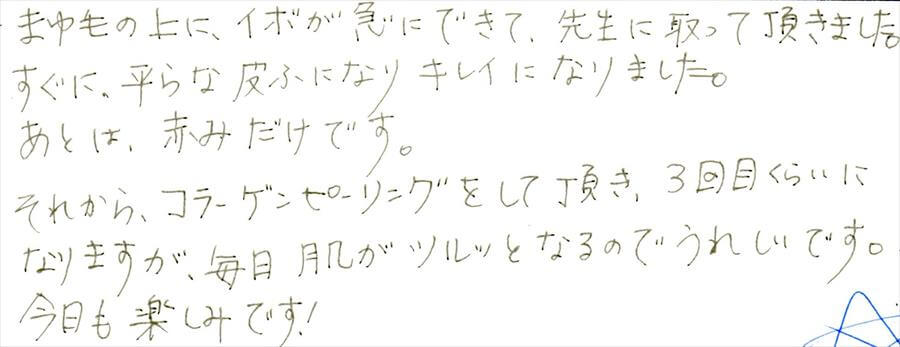 まゆ毛の上に、イボが急にできて、先生に取って頂きました。
すぐに、平らな皮ふになりキレイになりました。
あとは、赤みだけです。
それから、コラーゲンピーリングをして頂き、3回目くらいに
なりますが、毎日肌がツルッとなるのでうれしいです。
今日も楽しみです!